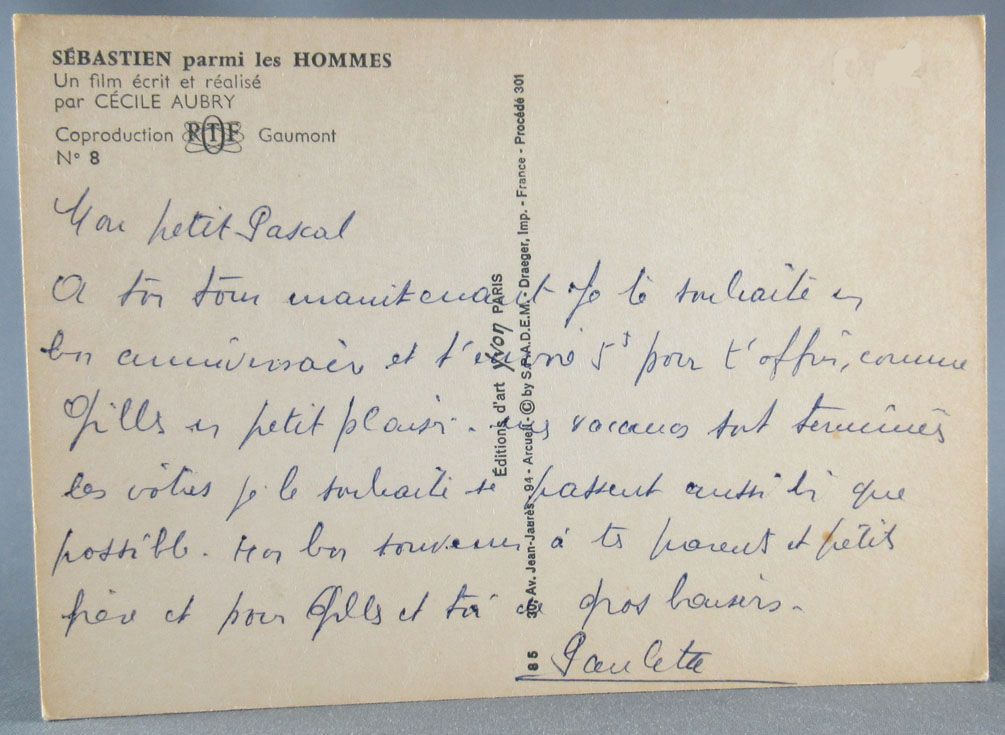 SÉBASTIEN parmi les HOMMES
Un film écrit et réalisé
par CÉCILE AUBRY
Coproduction RTF Gaumont
N° 8
Mon petit Pascal
A ton tour maintenant Je te souhaite un
bon anniversaire et t'envoie 5f pour t'offrir, comme
Gilles un petit plaisir. nos vacances sont terminées
les vôtres je le souhaite se passent aussi bi que
possible. Mon bon souvenir à tes parents et petits
frère et pour Gilles et toi de gros baisers.
Paulette
Éditions d'art YVON PARIS
85 30, Av. Jean-Jaurès - 94 - Arcueil - © by S.P.A.D.E.M. - Draeger, Imp. - France - Procédé 301